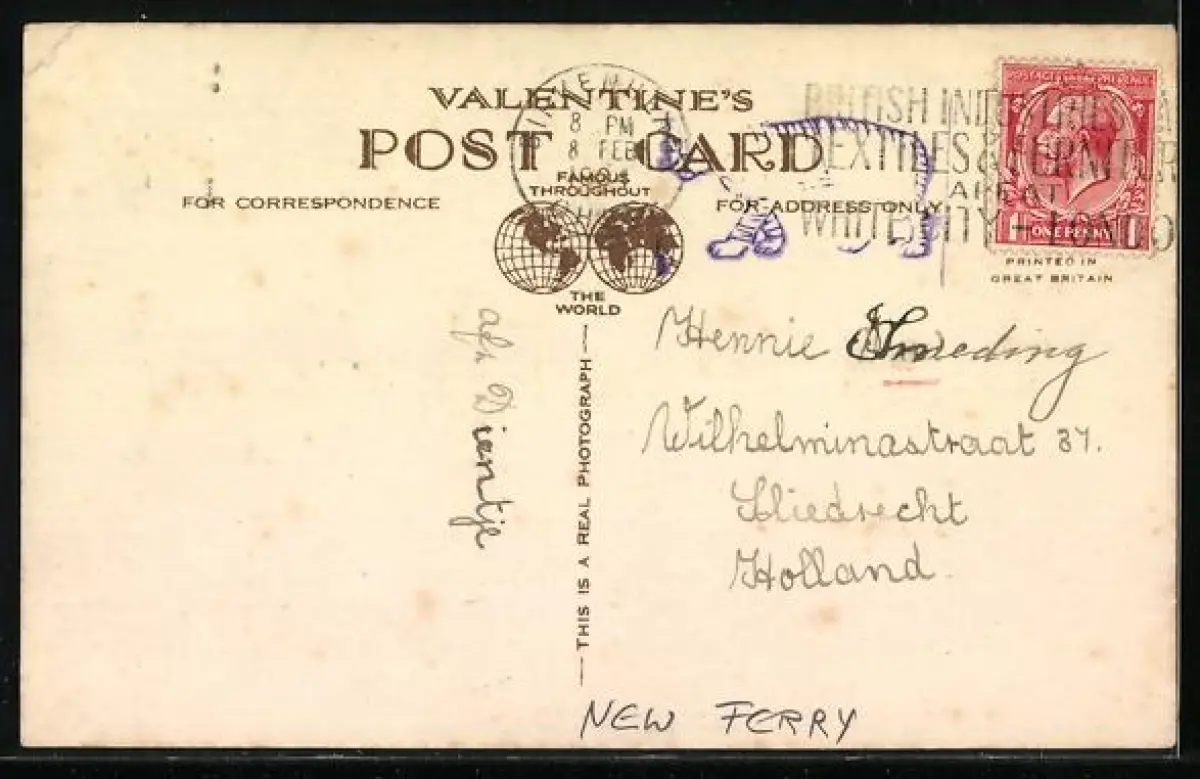 VALENTINE'S
POST CARD
FAMOUS
THROUGHOUT
THE
WORLD
FOR CORRESPONDENCE
FOR ADDRESS ONLY
8 PM
8 FEB
BRITISH INDUSTRIES
TEXTILES &
FAIR AT
WHITE CITY - LONDO
POSTAGE REVENUE
ONE PENNY
PRINTED IN
GREAT BRITAIN
afs Dientje
THIS IS A REAL PHOTOGRAPH
Hennie Smeding
Wilhelminastraat 37.
Sliedrecht
Holland.
NEW FERRY